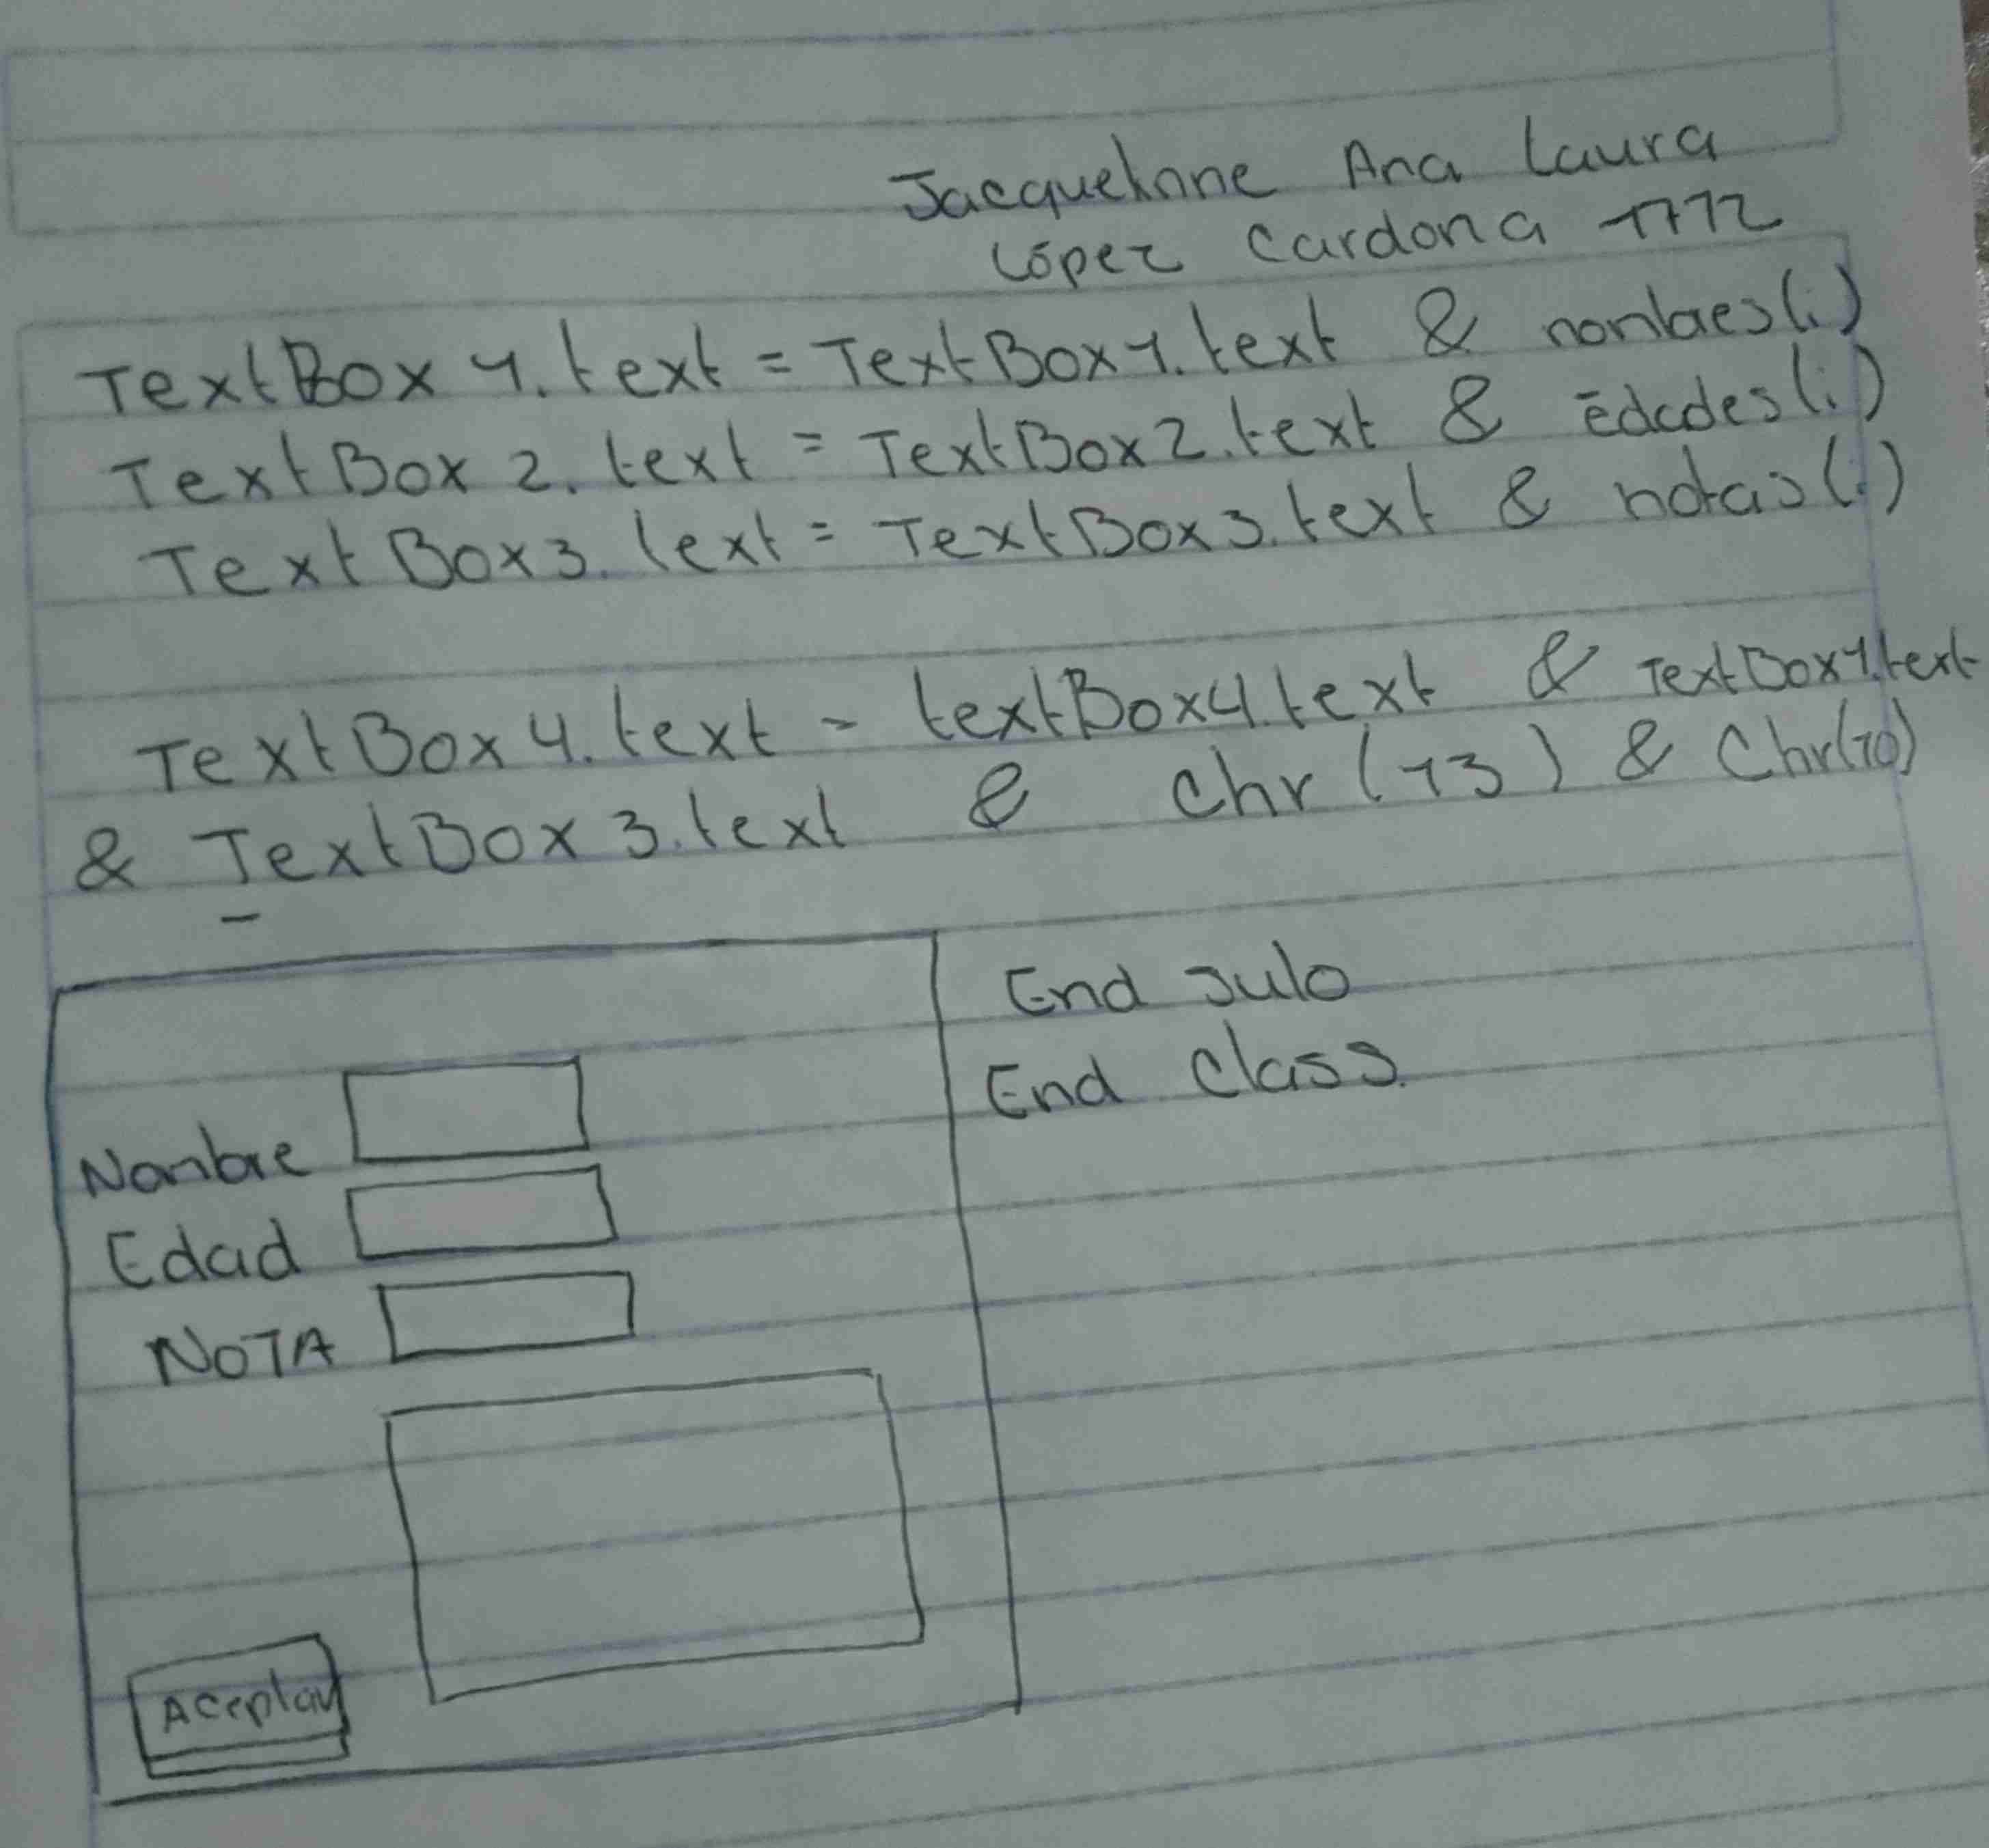 Jacquelinne Ana Laura
López Cardona 1772
TextBox 1.text = TextBox1.text & nombres(i)
TextBox 2.text = TextBox2.text & Edades(i)
TextBox3.text = TextBox3.text & notas(i)
TextBox4.text = textBox4.text & TextBox1.text
& TextBox3.text & Chr(13) & Chr(10)
End sub
End Class.
Nombre
Edad
NOTA
Aceptar